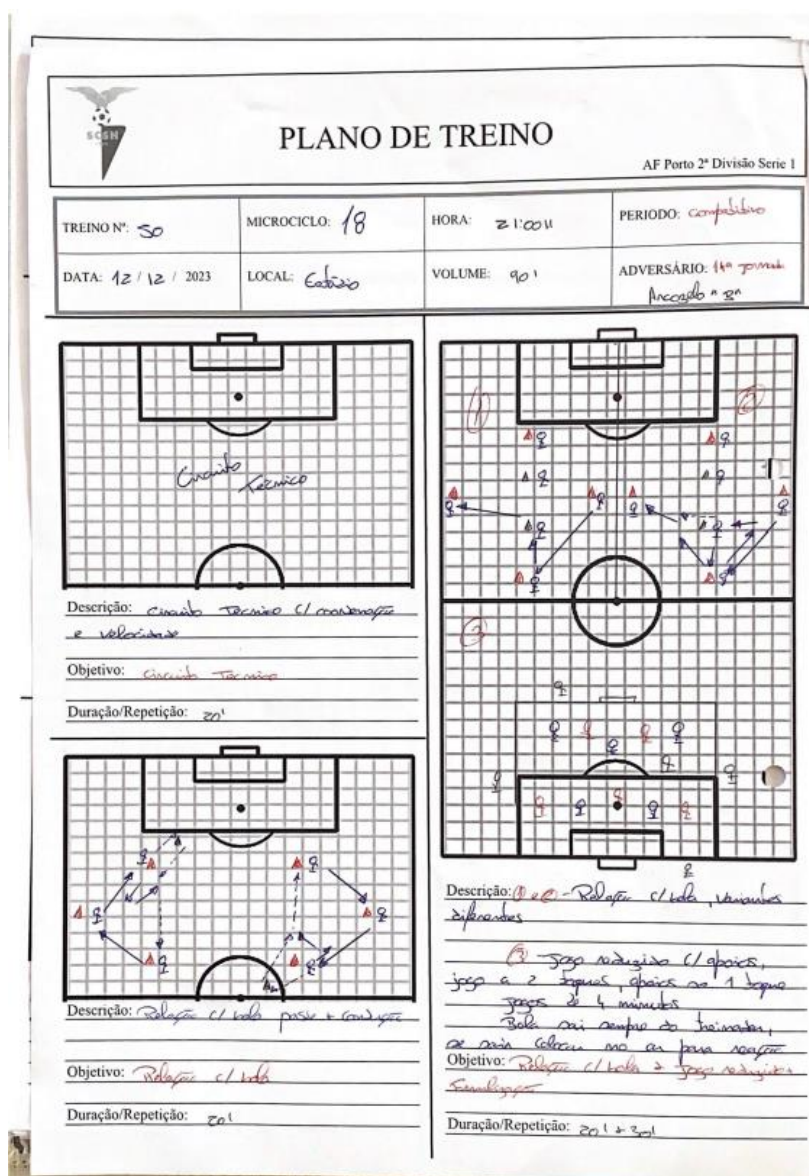 SCSH
PLANO DE TREINO
AF Porto 2ª Divisão Serie 1
TREINO Nº: 50
MICROCICLO: 18
HORA: 21:00H
PERIODO: Competitivo
DATA: 12 / 12 / 2023
LOCAL: Estádio
VOLUME: 90'
ADVERSÁRIO: 11ª jornada
"B"
Circuito
Tecnico
Descrição: Circuito Tecnico c/ coordenação
e velocidade
Objetivo: Circuito Tecnico
Duração/Repetição: 20'
Descrição: Relação c/ bola passe + condução
Objetivo: Relação c/ bola
Duração/Repetição: 20'
1
2
3
Descrição: 1 e 2 - Relação c/ bola, variantes
diferentes
3 Jogo reduzido c/ apoios,
jogo a 2 toques, apoios so 1 toque
jogos de 4 minutos
Bola sai sempre do treinador,
se sair colocar no ar para reação
Objetivo: Relação c/ bola + jogo reduzido +
finalização
Duração/Repetição: 20' + 30'